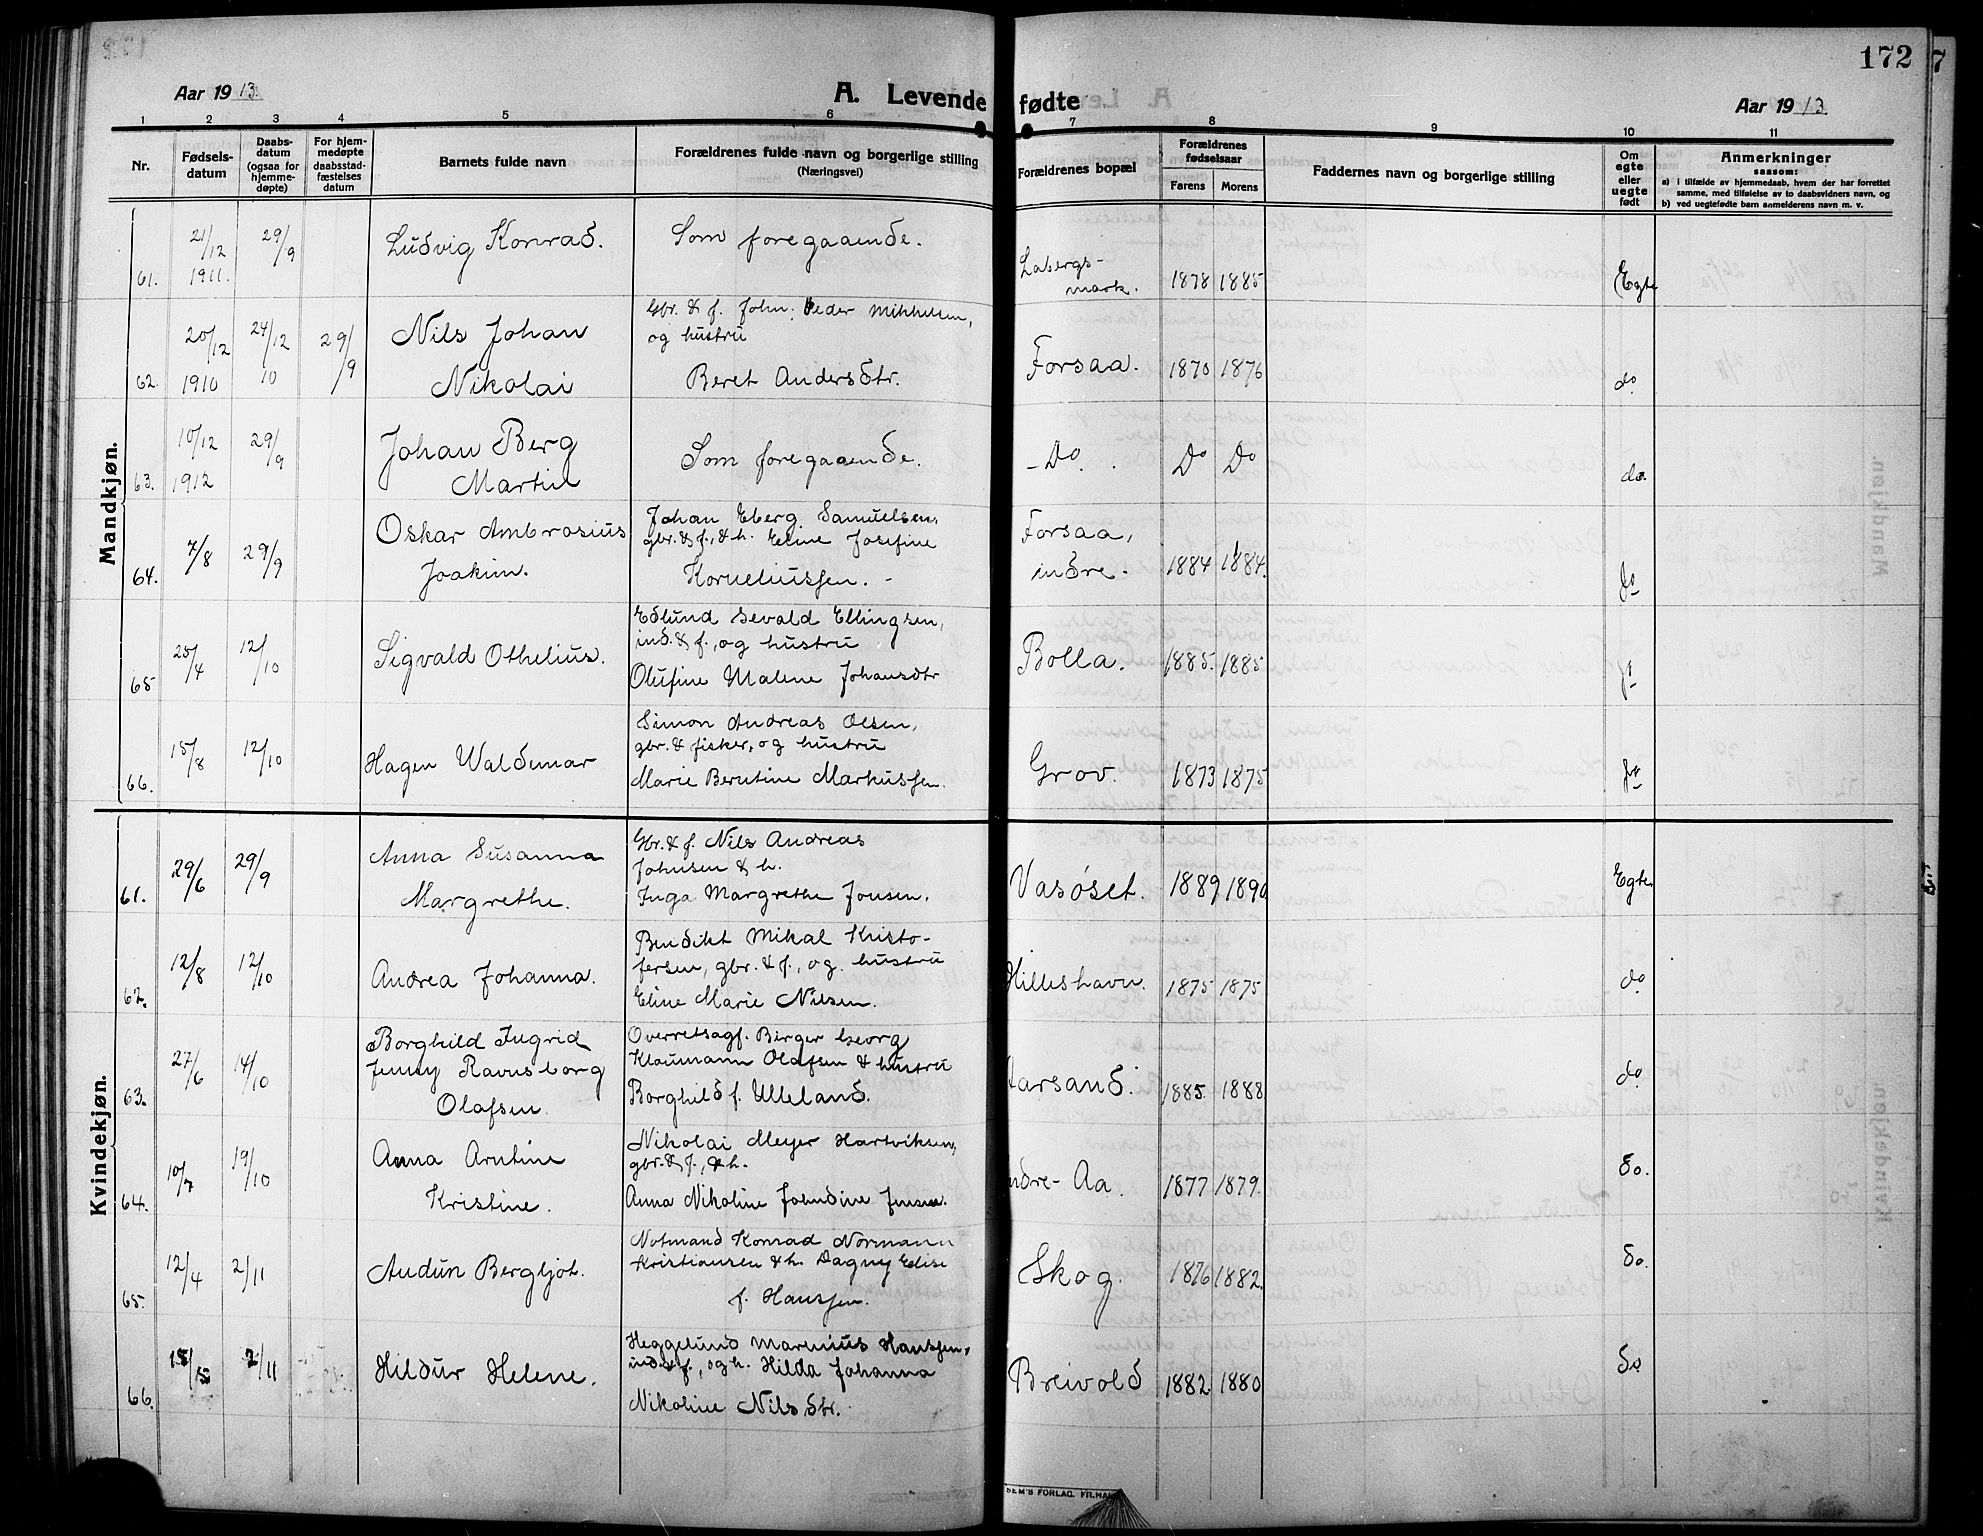 172
Aar 1913.
A. Levende fødte
Aar 1913
1 2 3 4 5 6 7 8 9 10 11
Nr.
Fødsels-
datum
Daabs-
datum
(ogsaa for
hjemme-
døpte)
For hjem-
medøpte
daabsstad-
fæstelses
datum
Barnets fulde navn
Forældrenes fulde navn og borgerlige stilling
(Næringsvei)
Forældrenes bopæl
Forældrenes
fødselsaar
Farens Morens
Faddernes navn og borgerlige stilling
Om
egte
eller
uegte
født
Anmerkninger
saasom:
a) i tilfælde av hjemmedaab, hvem der har forrettet
samme, med tilføielse av to daabsvidners navn, og
b) ved uegtefødte barn anmelderens navn m. v.
Mandkjøn.
61. 21/12 1911. 29/9 Ludvig Konrad. Som foregaaende. mark. 1878 1885 Egte
62. 20/12 1910 24/12 10 29/9 Nils Johan
Nikolai
Gbr. & f. John Peder Mikkelsen,
og hustru
Beret Andersdtr.
Forsaa. 1870 1876 do
63. 10/12 1912 29/9 Johan Berg
Martin
Som foregaaende. -Do. Do Do do.
64. 7/8 29/9 Oskar Ambrosius
Joakim.
Johan Eberg Samuelsen,
gbr. & f., & h. Eline Josefine
Korneliussen. -
Forsaa,
indre. 1884 1884. do
65 25/4 12/10 Sigvald Othelius.
Edlund Sevald Ellingsen,
ind. & f., og hustru
Olufine Malene Johansdtr
Bolla. 1885. 1885
66. 15/8 12/10 Hagen Waldemar
Simon Andreas Olsen,
gbr. & fisker, og hustru
Marie Berntine Markussen.
Grov. 1873 1875
Kvindekjøn.
61. 29/6 29/9 Anna Susanna
Margrethe.
Gbr. & f. Nils Andreas
Johnsen & h.
Inga Margrethe Jonsen.
Vasøset. 1889 1890 Egte.
62. 12/8 12/10 Andrea Johanna.
Bendikt Mikal Kristo-
fersen, gbr. & f., og hustru
Eline Marie Nilsen.
Hilleshavn. 1875 1875 do
63. 27/6 14/10 Borghild Ingrid
Jenny Ravnsborg
Olafsen.
Overretsagf. Birger Georg
Klaumann Olafsen & hustru
Borghild f. Ulleland.
arsand. 1885. 1888 do
64. 10/7 19/10 Anna Arntine
Kristine.
Nikolai Meyer Hartviksen,
gbr. & f., & h.
Anna Nikoline Jensen.
ndre-Aa. 1877 1879. do.
65. 12/4 2/11 Audun Bergljot.
Notmand Konrad Normann
Kristiansen & h. Dagny Elise
f. Hanssen.
Skog. 1876 1882. do.
66. 2/11 Hildur Helene.
Heggelund Marinius Hanssen,
ind. & f., og h. Hilda Johanna
Nikoline Nilsdtr.
Breivold 1882 1880 do
SEM'S FORLAG. FR.HA